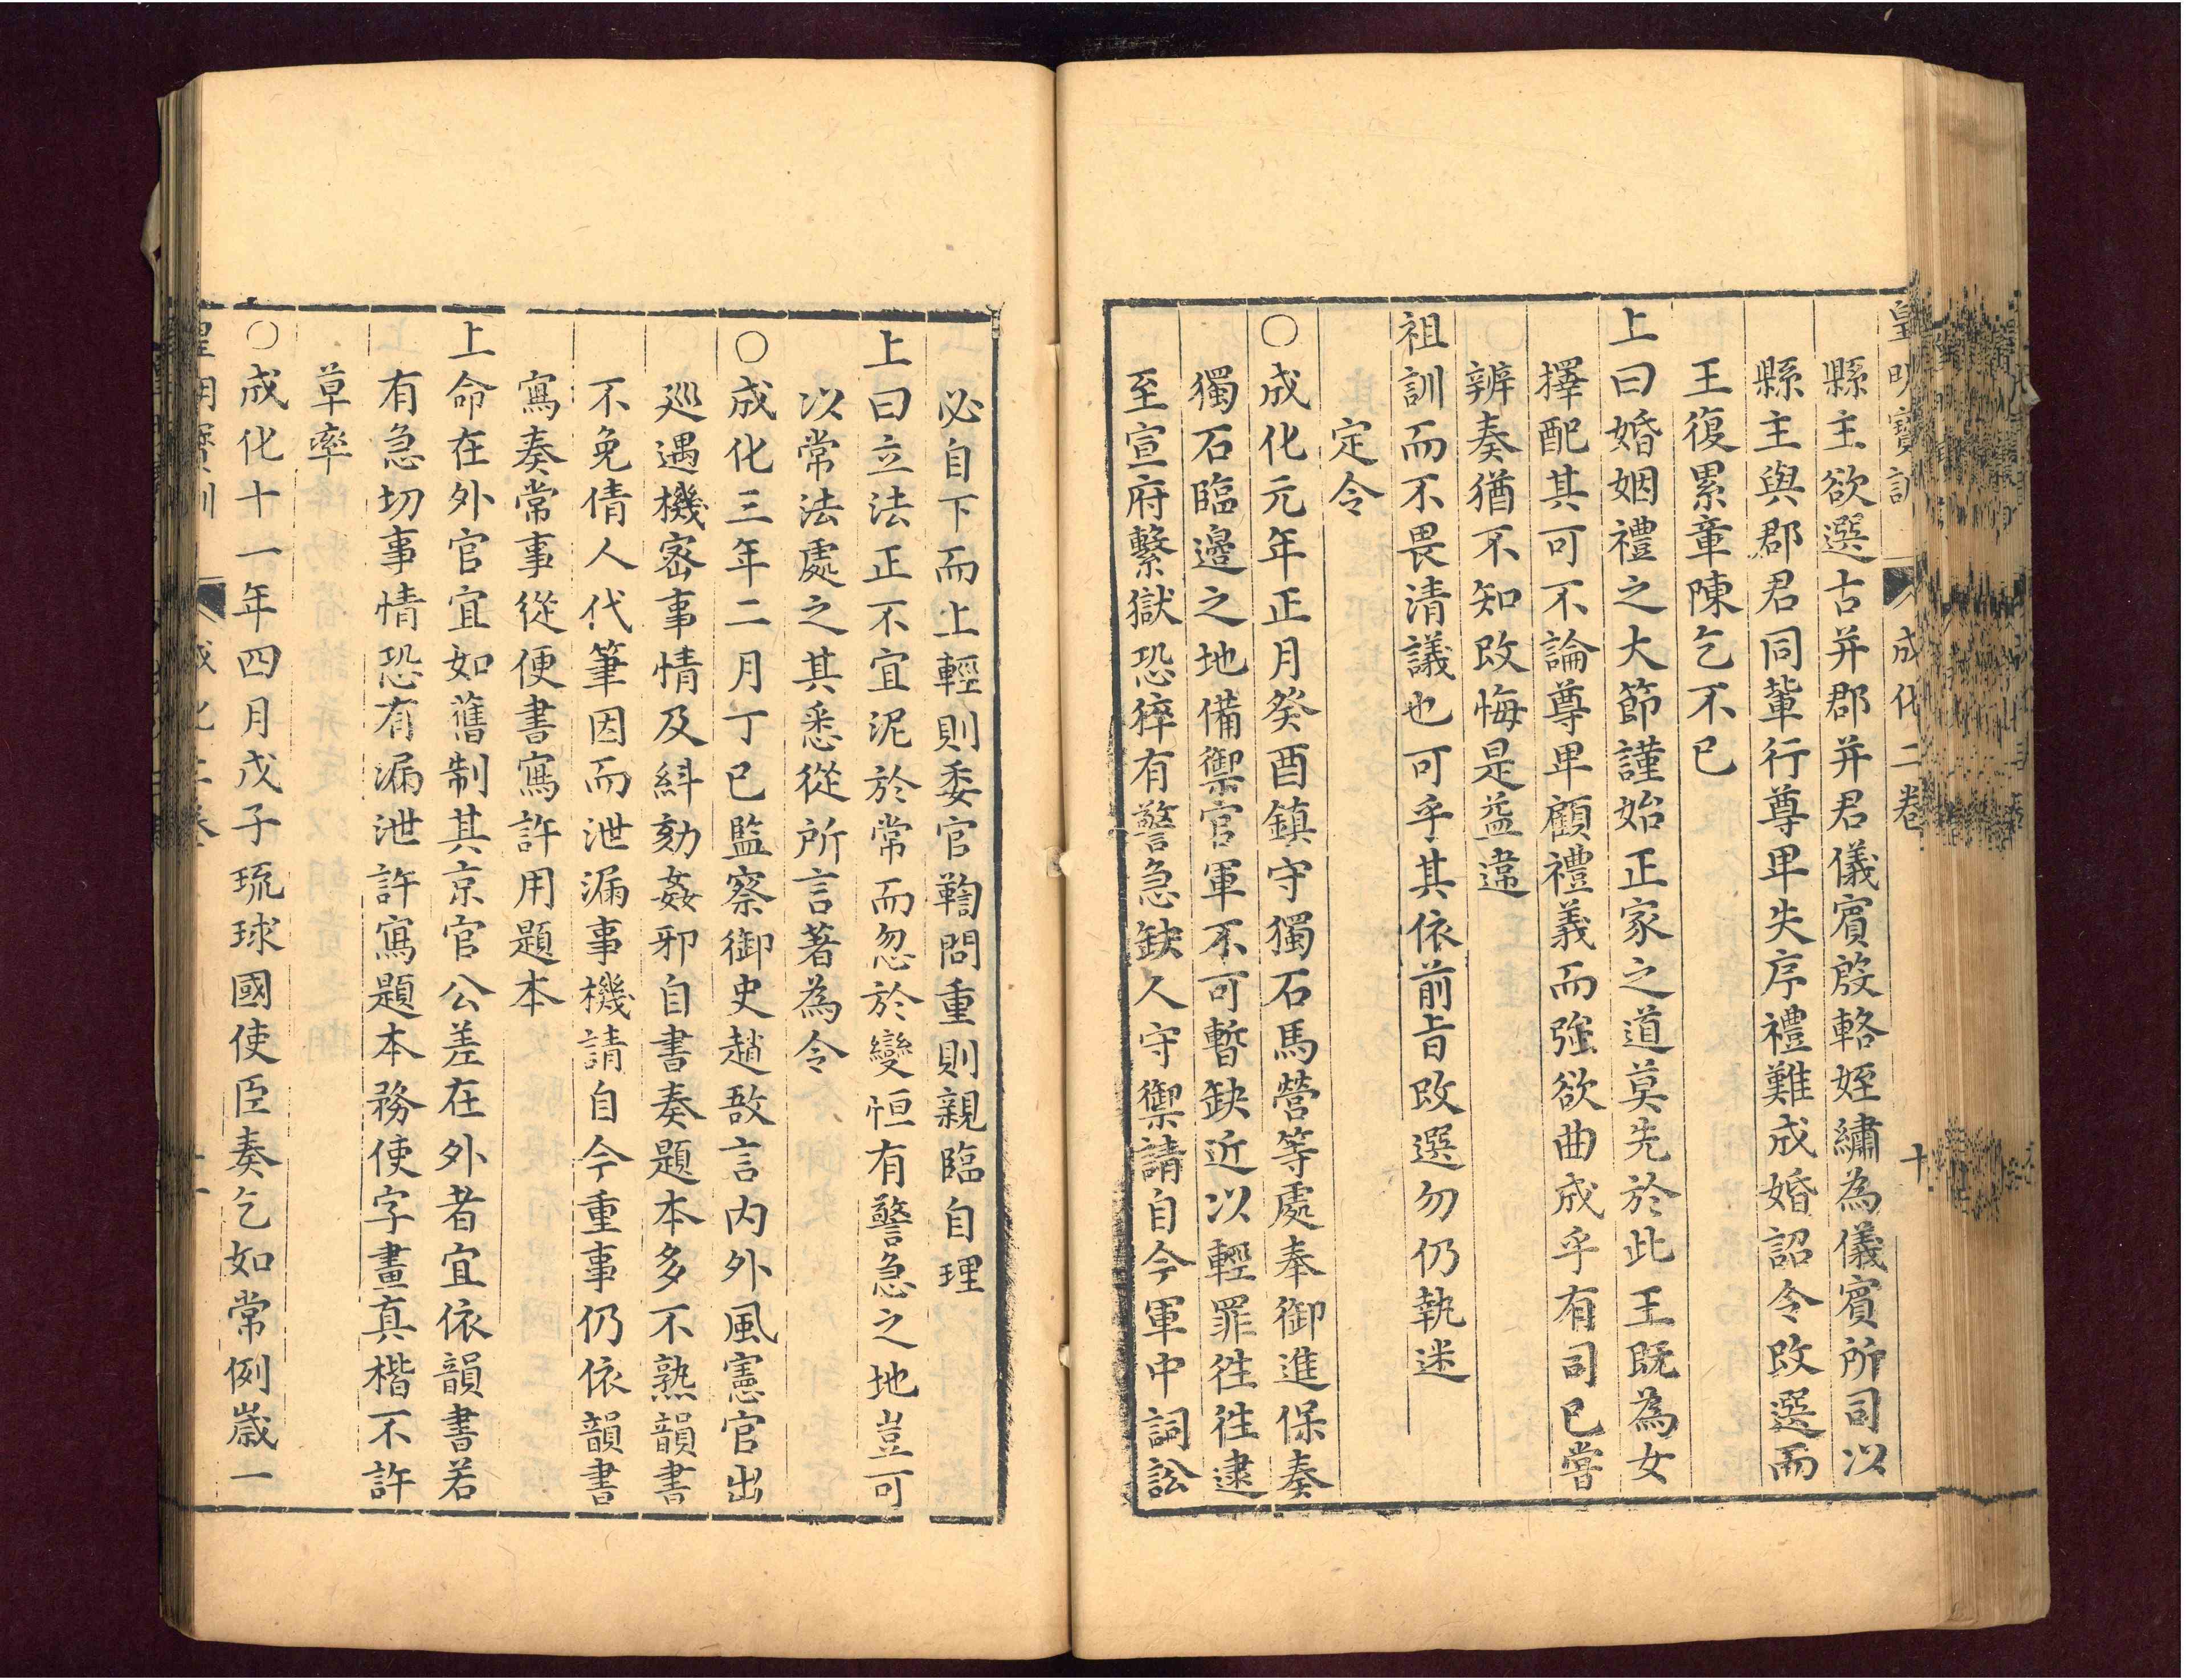 皇明寶訓 成化二卷 十
縣主欲選古并郡并君儀賓殷輅姪繡為儀賓所司以
縣主與郡君同輩行尊卑失序禮難成婚詔令改選而
王復累章陳乞不已
上曰婚姻禮之大節謹始正家之道莫先於此王既為女
擇配其可不論尊卑顧禮義而強欲曲成乎有司已嘗
辨奏猶不知改悔是益違
祖訓而不畏清議也可乎其依前旨改選勿仍執迷
定令
○成化元年正月癸酉鎮守獨石馬營等處奉御進保奏
獨石臨邊之地備禦官軍不可暫缺近以輕罪徃徃逮
至宣府繫獄恐猝有警急缺人守禦請自今軍中詞訟
必自下而上輕則委官鞫問重則親臨自理
上曰立法正不宜泥於常而忽於變恒有警急之地豈可
以常法處之其悉從所言著為令
○成化三年二月丁巳監察御史趙敔言内外風憲官出
廵遇機宻事情及糾劾姦邪自書奏題本多不熟韻書
不免倩人代筆因而泄漏事機請自今重事仍依韻書
寫奏常事從便書寫許用題本
上命在外官宜如舊制其京官公差在外者宜依韻書若
有急切事情恐有漏泄許寫題本務使字畫真楷不許
草率
○成化十一年四月戊子琉球國使臣奏乞如常例歲一